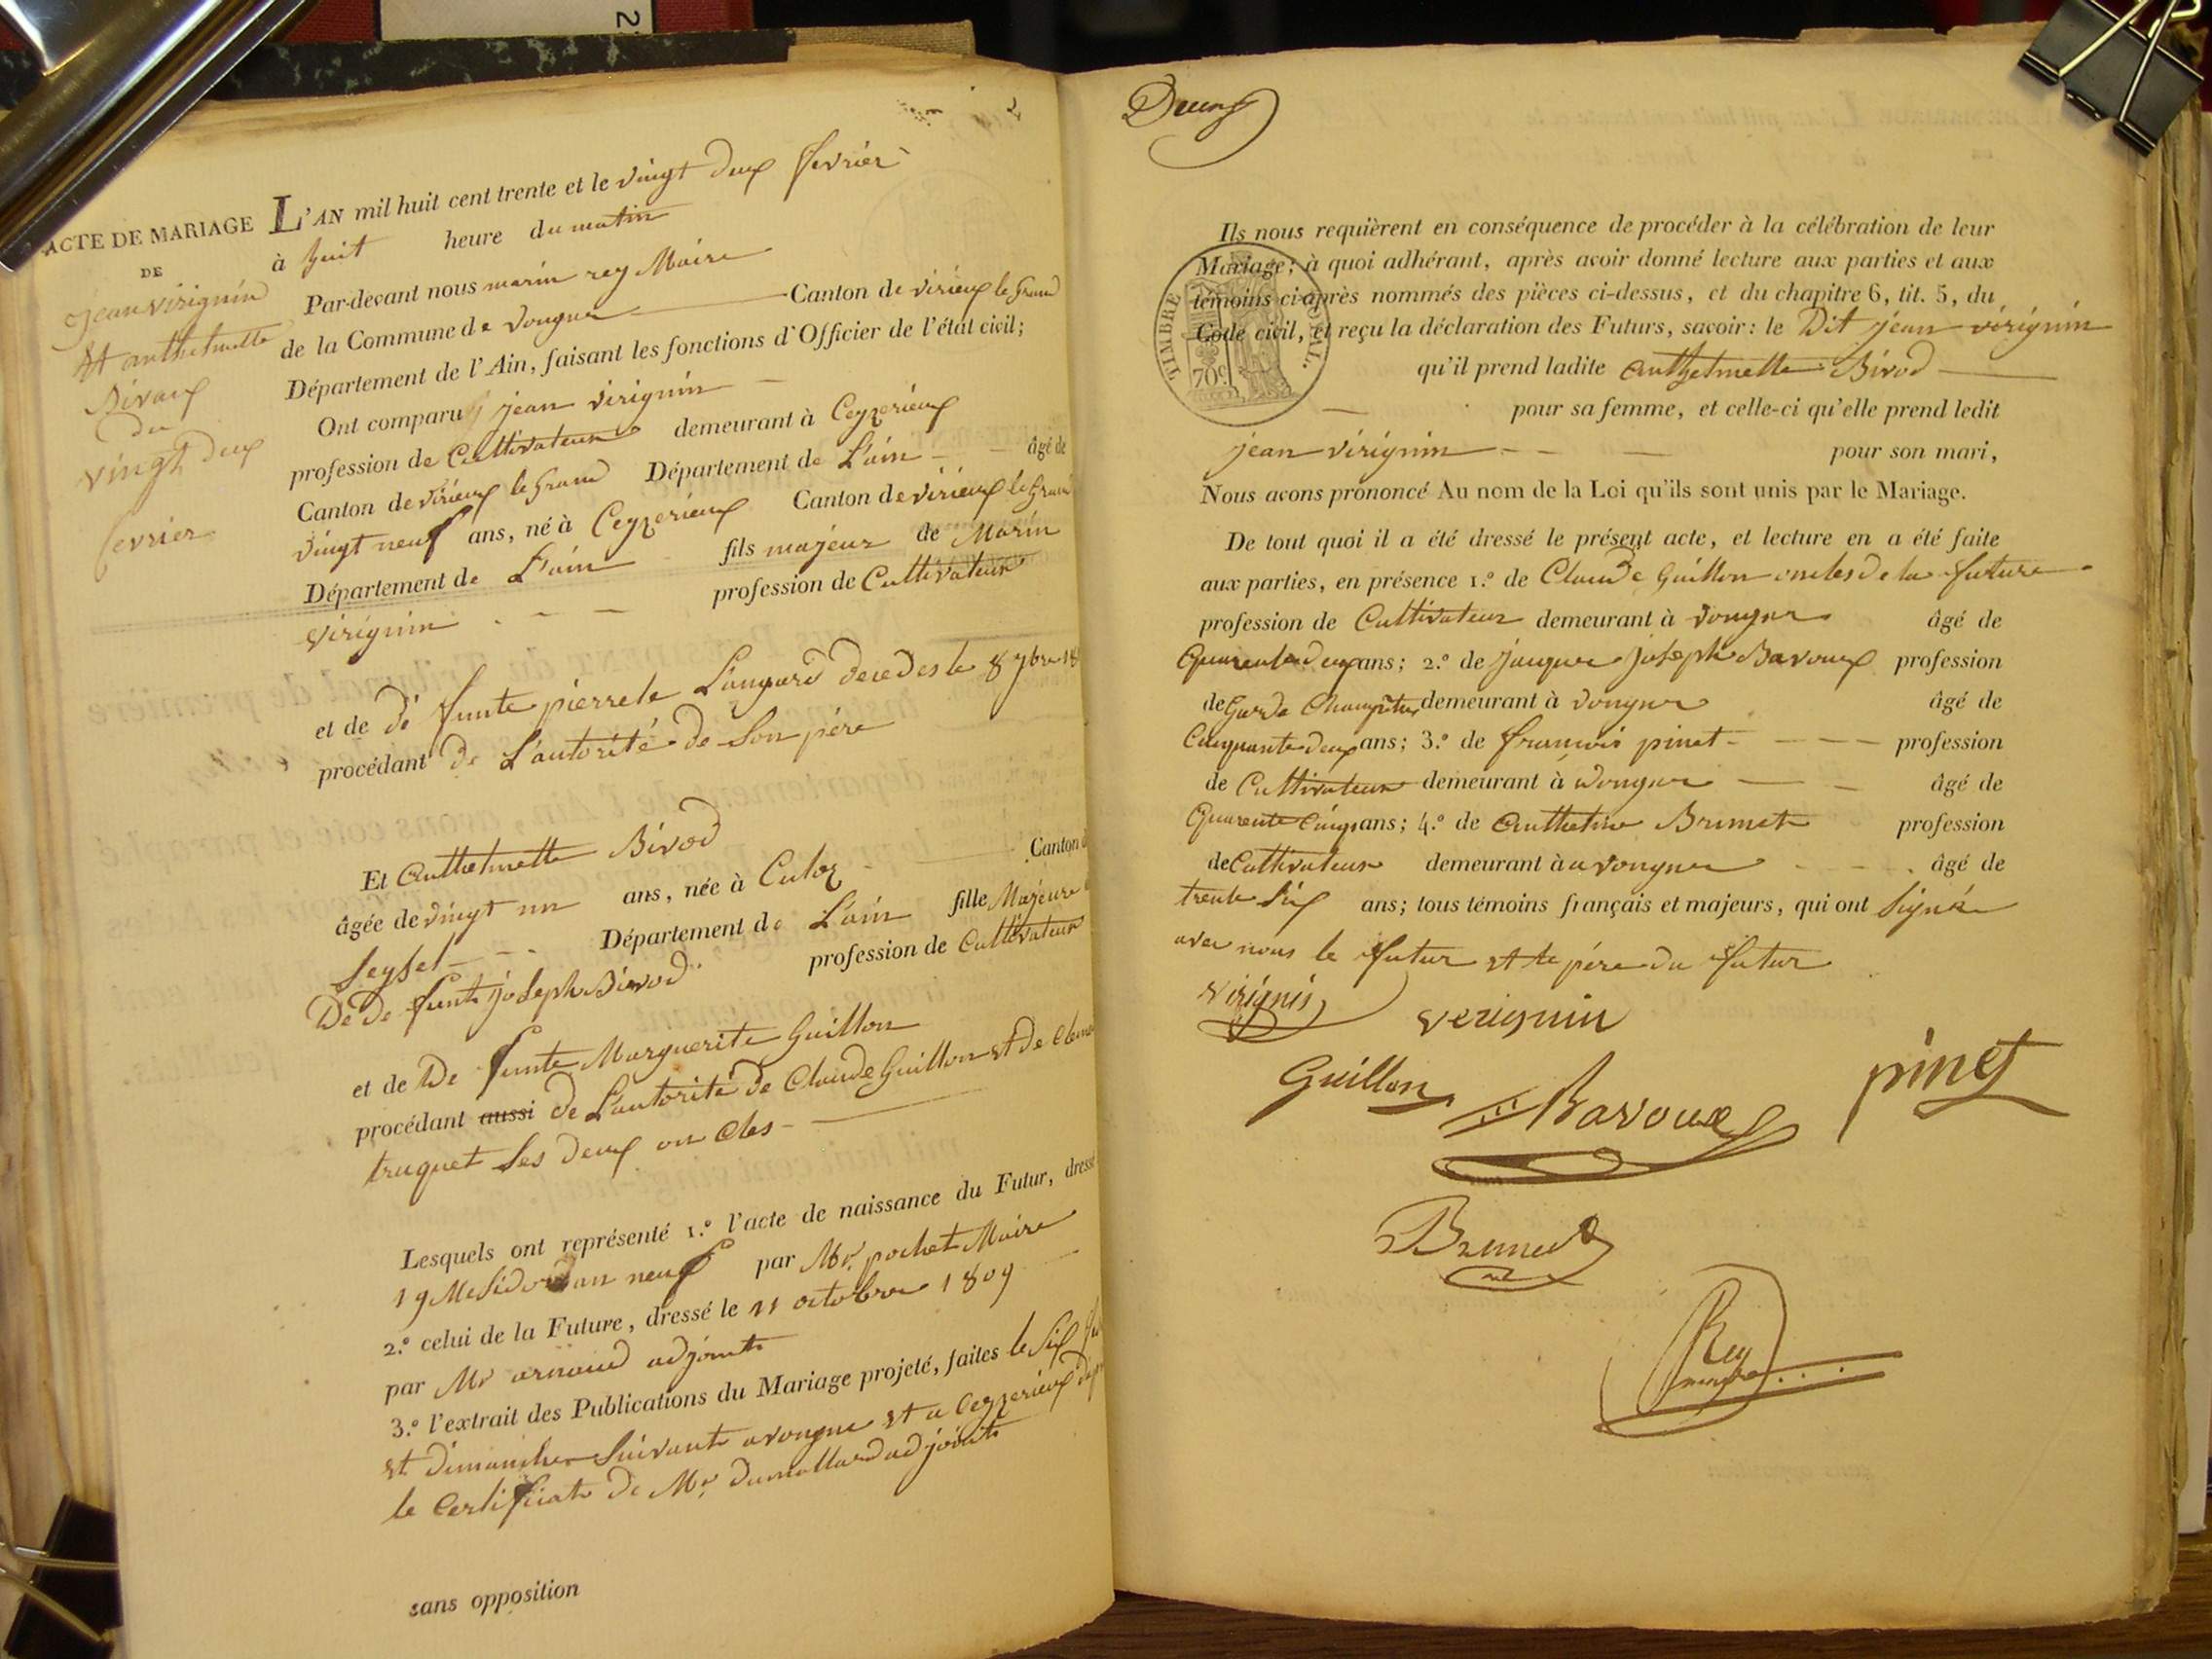 2
ACTE DE MARIAGE
DE
jean virignin
et anthelmette
Bivod
du
vingt deux
fevrier
L'AN mil huit cent trente et le vingt deux fevrier
à huit heure du matin
Par-devant nous marin rey Maire
de la Commune de vongne Canton de virieux le grand
Département de l'Ain, faisant les fonctions d'Officier de l'état civil;
Ont comparu jean virignin
profession de Cultivateur demeurant à Ceyzerieux
Canton de virieux le grand Département de L'ain âgé de
vingt neuf ans, né à Ceyzerieux Canton de virieux le grand
Département de L'ain fils majeur de Marin
virignin profession de Cultivateur
et de dé funte pierrete Languard decedes le 8 7bre 18
procédant de L'autorité de Son pére
Et Anthelmette Bivod
âgée de vingt un ans, née à Culoz Canton d
Seyssel Département de L'ain fille Majeure
De de funt joseph Bivod profession de Cultivateur
et de De funte Marguerite Guillon
procédant aussi de L'autorité de Claude Guillon et de
truquet Ses deux on cles
Lesquels ont représenté 1.º l'acte de naissance du Futur, dressé
19 Mesidor an neuf par Mr. pochet Maire
2.º celui de la Future, dressé le 11 octobre 1809
par Mr arnaud adjoint
3.º l'extrait des Publications du Mariage projeté, faites le Six
et dimanche Suivant a vongne et a Ceyzerieux
le Certificat de Mr. dumollard adjoint
sans opposition
Deux
Ils nous requièrent en conséquence de procéder à la célébration de leur
Mariage; à quoi adhérant, après avoir donné lecture aux parties et aux
témoins ci-après nommés des pièces ci-dessus, et du chapitre 6, tit. 5, du
Code civil, et reçu la déclaration des Futurs, savoir: le Dit jean virignin
TIMBRE ROYAL.
70c
qu'il prend ladite Anthelmette Bivod
pour sa femme, et celle-ci qu'elle prend ledit
jean virignin pour son mari,
Nous avons prononcé Au nom de la Loi qu'ils sont unis par le Mariage.
De tout quoi il a été dressé le présent acte, et lecture en a été faite
aux parties, en présence 1.º de Claude Guillon oncles de la future
profession de Cultivateur demeurant à vongne âgé de
Quarente deux ans; 2.º de jaque joseph Bavoux profession
de Garde Champetre demeurant à vongne âgé de
Cinquante deux ans; 3.º de francois pinet profession
de Cultivateur demeurant à vongne âgé de
Quarente Cinq ans; 4.º de Anthelme Brunet profession
de Cultivateur demeurant à a vongne âgé de
trente Six ans; tous témoins français et majeurs, qui ont Signé
avec nous le futur et le pére du futur
virignin
verignin
Guillon
Bavoux
pinet
Brunet
Rey
maire